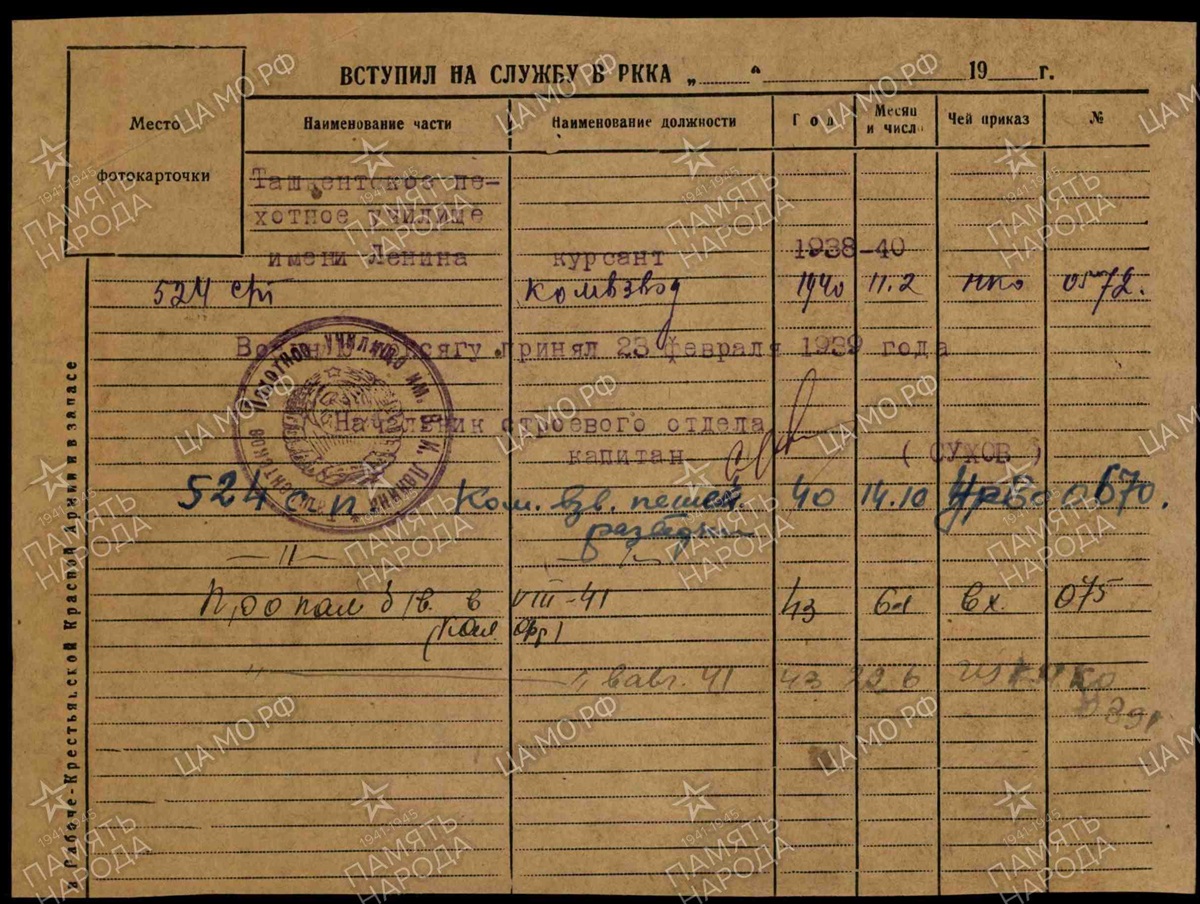 ВСТУПИЛ НА СЛУЖБУ В РККА „ “ 19 г.
Место фотокарточки
Наименование части Наименование должности Год Месяц и число Чей приказ №
Ташкентское пе-
хотное училище
имени Ленина курсант 1938-40
524 сп комвзвод 1940 11.2 нко 0572.
Военную присягу принял 23 февраля 1939 года
Начальник строевого отдела
капитан (СУХОВ)
Пехотное училище им. В. И. Ленина
524 с.п. Ком. взв. пешей 40 14.10 УрВо 0670.
разведки
—〃— —〃—
Пропал б/в. в VIII-41 43 вх. 075
〃 〃 в авг. 41 43 22 6
и Рабоче-Крестьянской Красной армии и в запасе
ЦАМО.РФ
1941-1945
ПАМЯТЬ НАРОДА